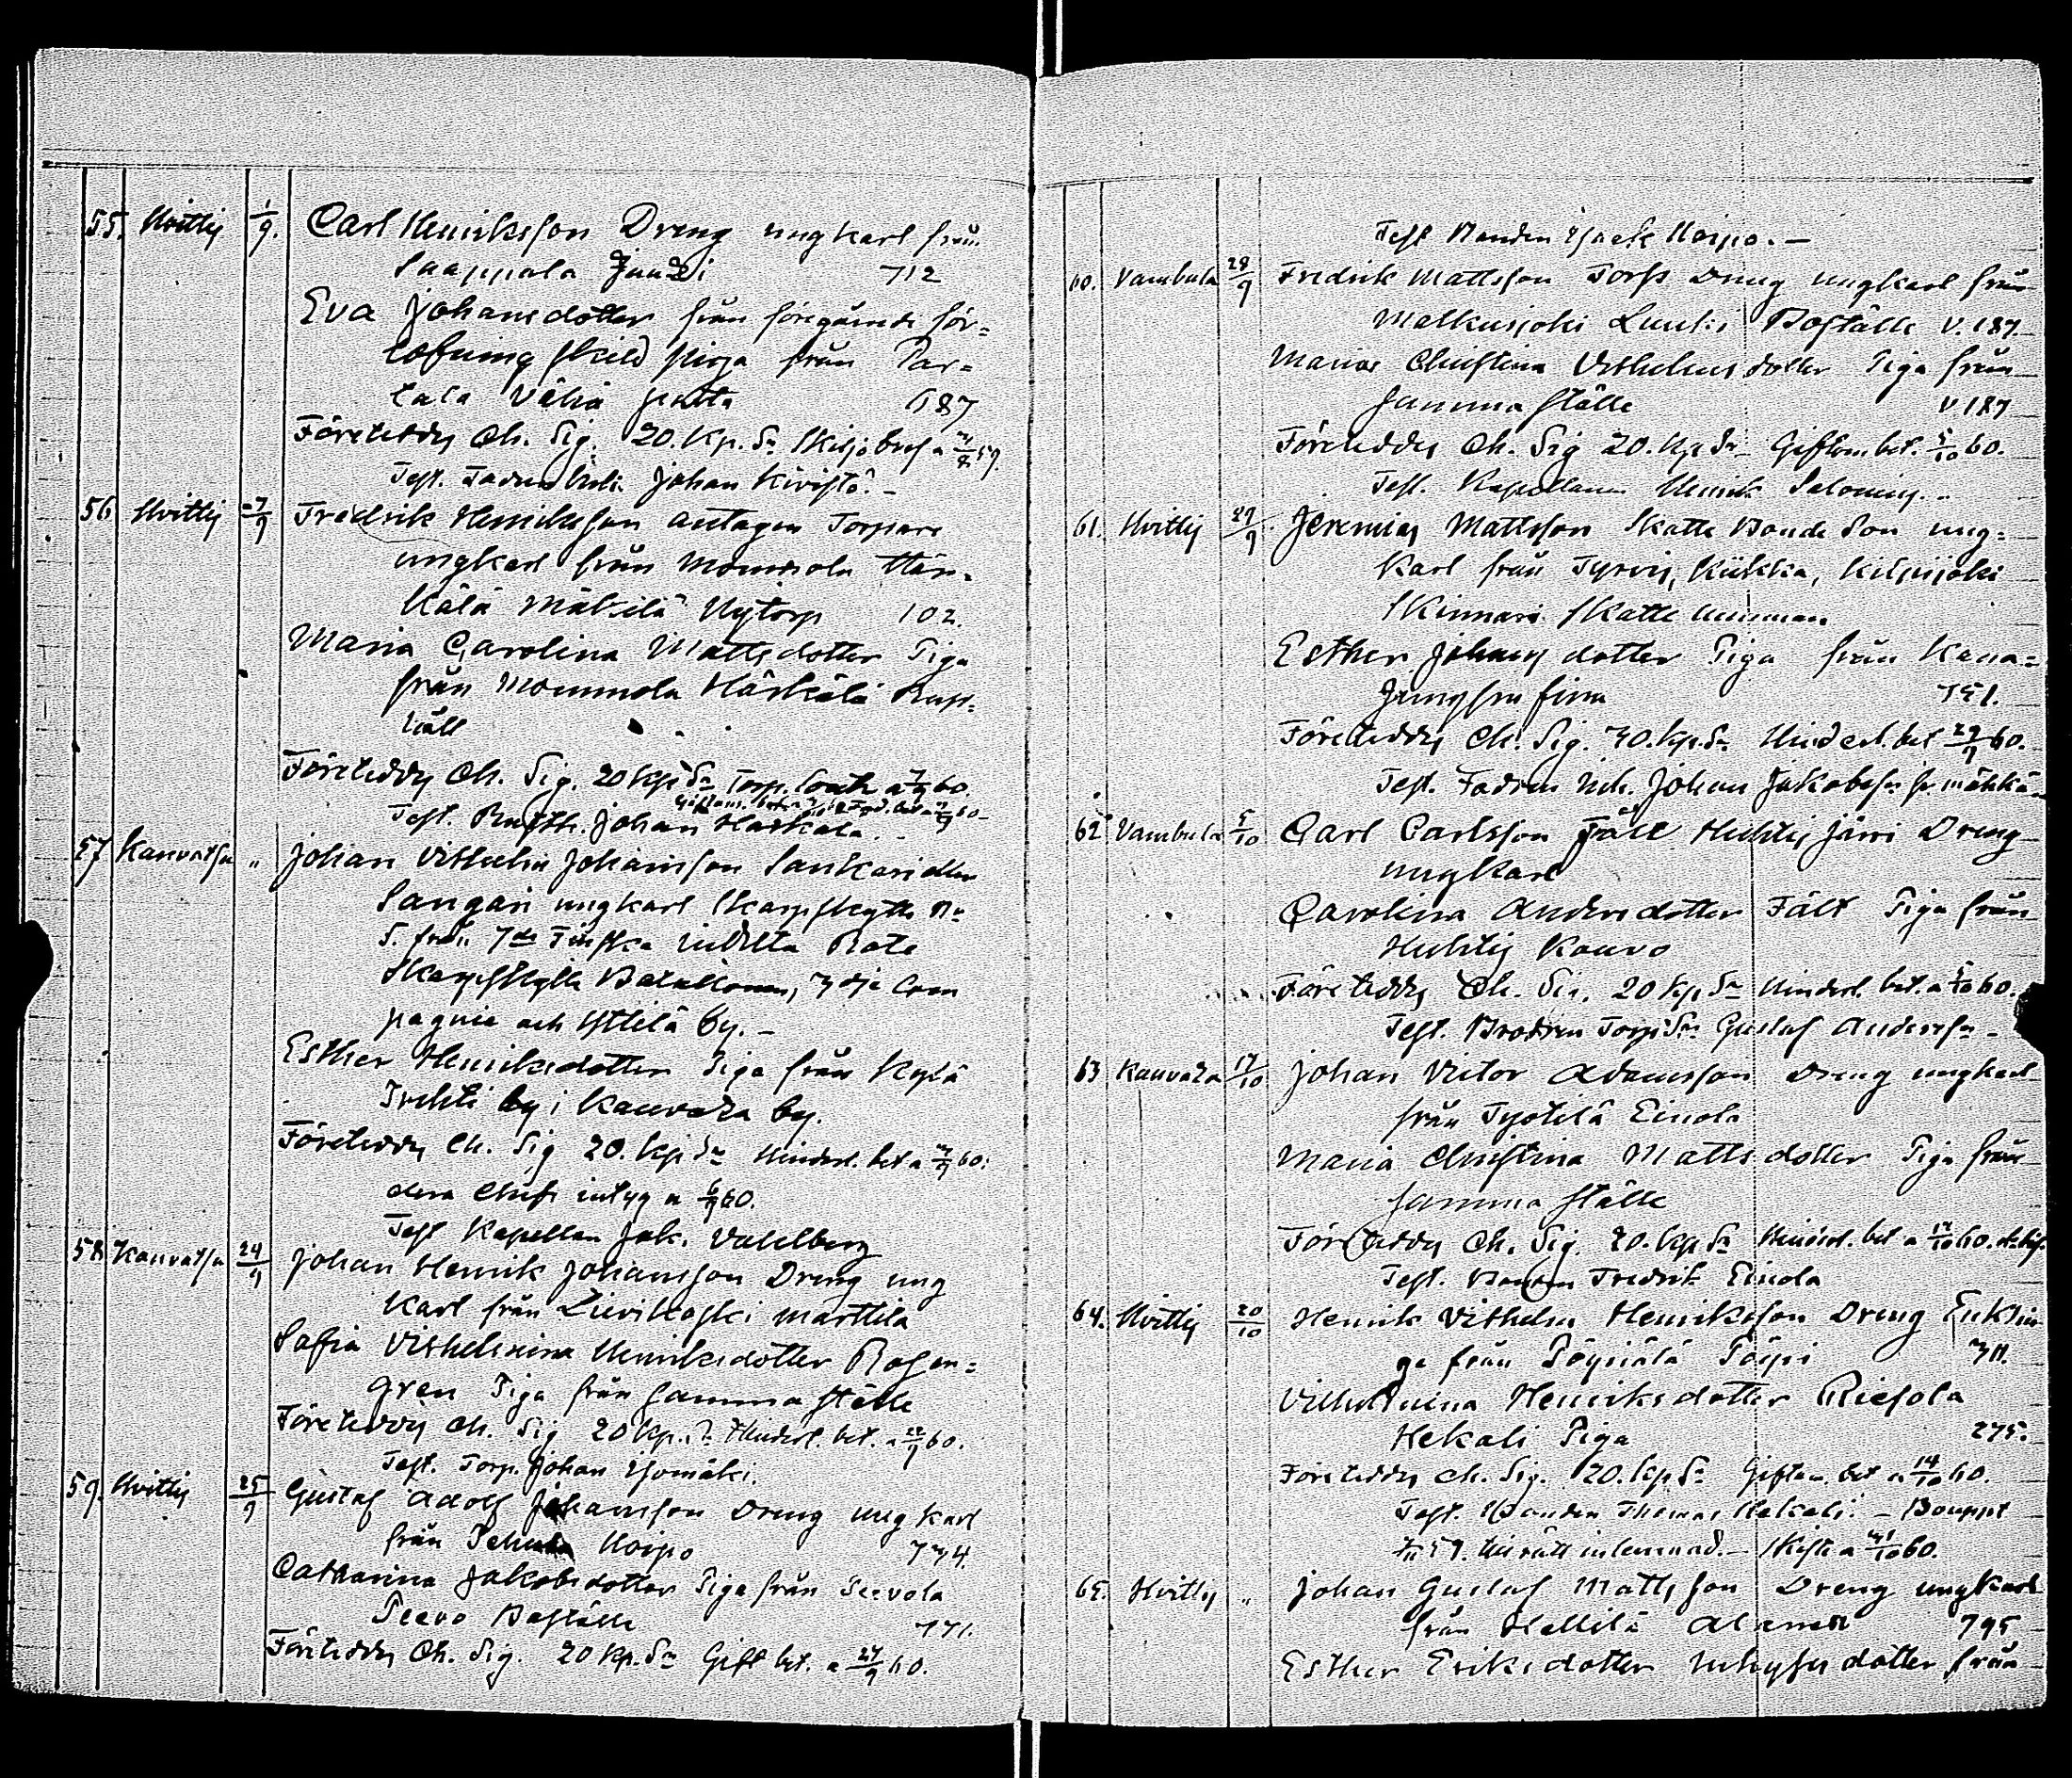 55. Hvittis 1/9. Carl Henriksson Dreng ungkarl från
Saappala Juusi 712
Eva Johansdotter från föregående för=
lofning skild piga från Par=
tala Vähä jutta 687
Företeddes Ch. Sig. 20. Kp. Sr Skiljobref a 59.
Test. Fadren Johan Kivistö. -
56 Hvittis 7/9 Fredrik Henriksson antagen Torpare
ungkarl från Mommola Här=
kälä Mäkilä Nytorp 102.
Maria Carolina Mattsdotter Piga
från Mommola Härkälä Rust=
håll
Företeddes Ch. Sig. 20 Kp. Sr Torp. 7/9 60.
Test. Rusth. Johan Härkälä. -
57 Kauvatsa " Johan Vilhelm Johansson Sankari eller
Sangari ungkarl Skarpskytte No
5. från 7de Finska indelta Rote
Skarpskytte Bataillonen, 3dje Com
pagnie och Yttilä by. -
Esther Henriksdotter Piga från Kylä
by i Kauvatsa by.
Företeddes Ch. Sig 20. Kp. Sr Hinderl. bet a 60.
dera Chefs intyg a 6/9 60.
Test Kapellan Jak. Vahlberg
58 Kauvatsa 24/9 Johan Henrik Johansson Dreng ung
karl från Lievikoski Marttila
Sofia Vilhelmina Henriksdotter Rosen=
gren Piga från samma ställe
Företeddes Ch. Sig 20 Kp. Sr Hinderl. bet. a 22/9 60.
Test. Torp. Johan Isomäki.
59. Hvittis 25/9 Gustaf Adolf Johansson Dreng ungkarl
från Hoipo 734
Catharina Jakobsdotter Piga från Seevola
Peevo Boställe 171.
Företeddes Ch. Sig. 20 Kp. Sr Gift bet. a 24/9 60.
Test Bonden Isack Hoipo. -
60. Vambula 28/9 Fredrik Mattsson Torps Dreng ungkarl från
Matkusjoki Luuki Boställe V. 187
Maria Christina Vilhelmsdotter Piga från
samma ställe V 187
Företeddes Ch. Sig 20. Kp Sr Giftom. bet. 5/10 60.
Test. Kapellanen Henrik Salonius. -
61. Hvittis 29/9 Jeremias Mattsson Skatte Bonde Son ung=
karl från Tyrvis, Kiikka, Kilpijoki
Skinnari Skatte hemman
Esther Johansdotter Piga från Kana=
Jungfru finn 751.
Företeddes Ch. Sig. 30. Kp. Sr Hinderl. bet 29/9 60.
Test. Fadren Inh. Johan Jakobsson
62 Vambula 5/10 Carl Carlsson Fält Huhtis Järvi Dreng
ungkarl
Carolina Andersdotter Fält Piga från
Huhtis Kouvo
Företeddes Ch. Sig. 20 Kp Sr Hinderl. bet. a 5/10 60.
Test. Brodren Torp. Sn Gustaf Andersson -
63 Kauvatsa 17/10 Johan Victor Adamsson Dreng ungkarl
från Tyotilä Einola
Maria Christina Mattsdotter Piga från
samma ställe
Företeddes Ch. Sig. 20. Kp Sr Hinderl. bet a 60.
Test. Bonden Fredrik Einola
64. Hvittis 20/10 Henrik Vilhelm Henriksson Dreng Enklin
ge från Pöyriälä Pörpi 311.
Vilhelmina Henriksdotter Riesola
Hekali Piga 275.
Företeddes Ch. Sig. 20. Kp Sr Giftom. bet a 14/10 60.
Test. Bonden Thomas Hekali. - Bouppt
59. Häradsrätt inlemnad. - Skifte a 60.
65. Hvittis " Johan Gustaf Mattsson Dreng ungkarl
från Hellilä 795
Esther Eriksdotter Inhysesdotter från